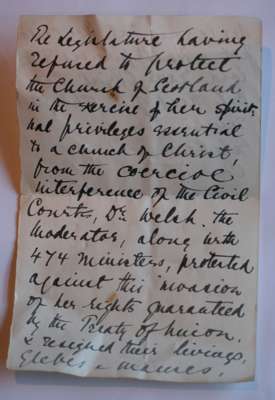 The Legislature having
refused to protect
the Church of Scotland
in the exercise of her spirit-
ual privileges essential
to a church of Christ,
from the coercive
interference of the Civil
Courts, Dr. Welsh. the
Moderator, along with
474 Ministers, protested
against this invasion
of her rights guaranteed
by the Treaty of Union,
& resigned their livings,
glebes & manses.